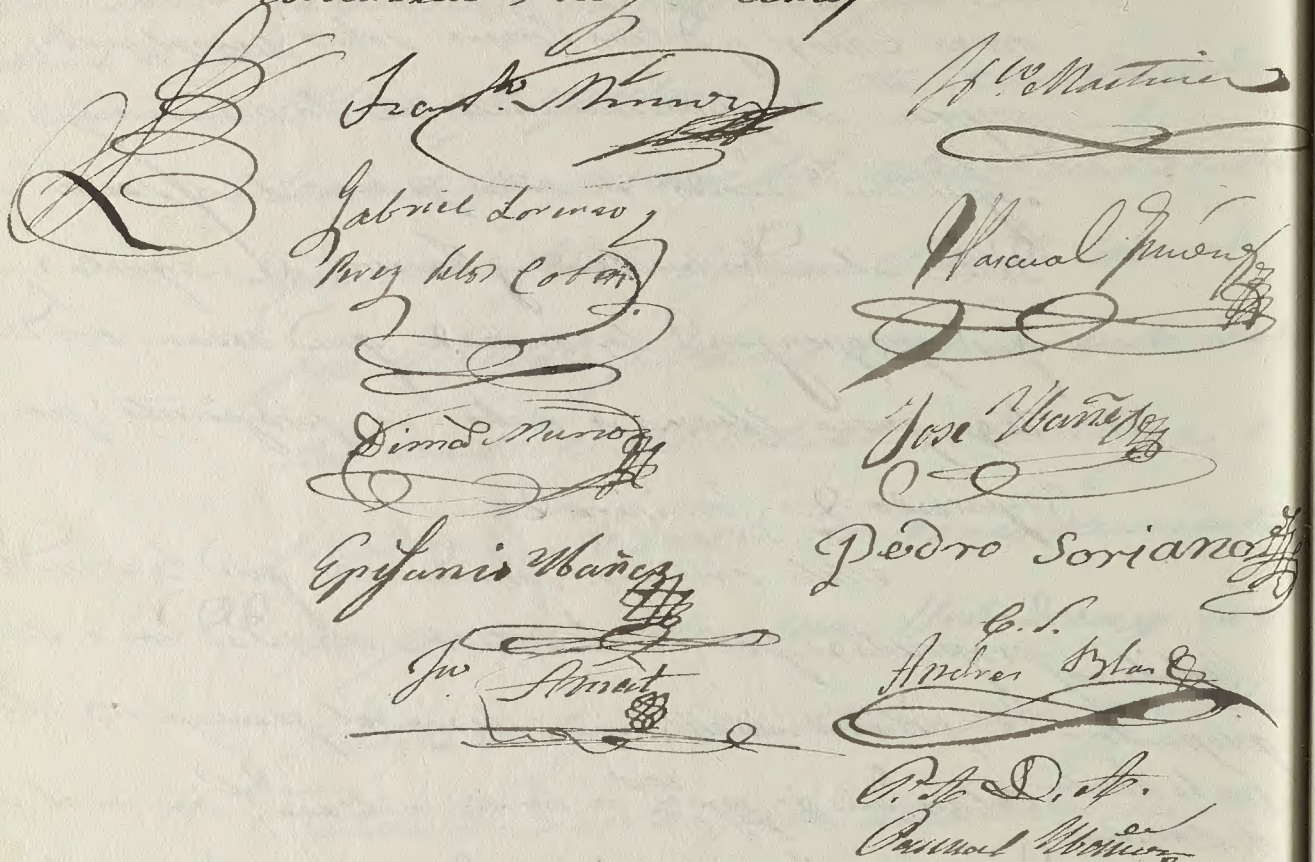 Fran.co Muñoz
Gabriel Lorenzo
Perez delos Cobos
Dimas Muñoz
Epifanio Ybañez
Jn.o Amat
Martinez
Pascual Jimenez
Jose Ybañez
Pedro Soriano
C. S.
Andres Blas
P. A. D. A.
Pascual Ybañez